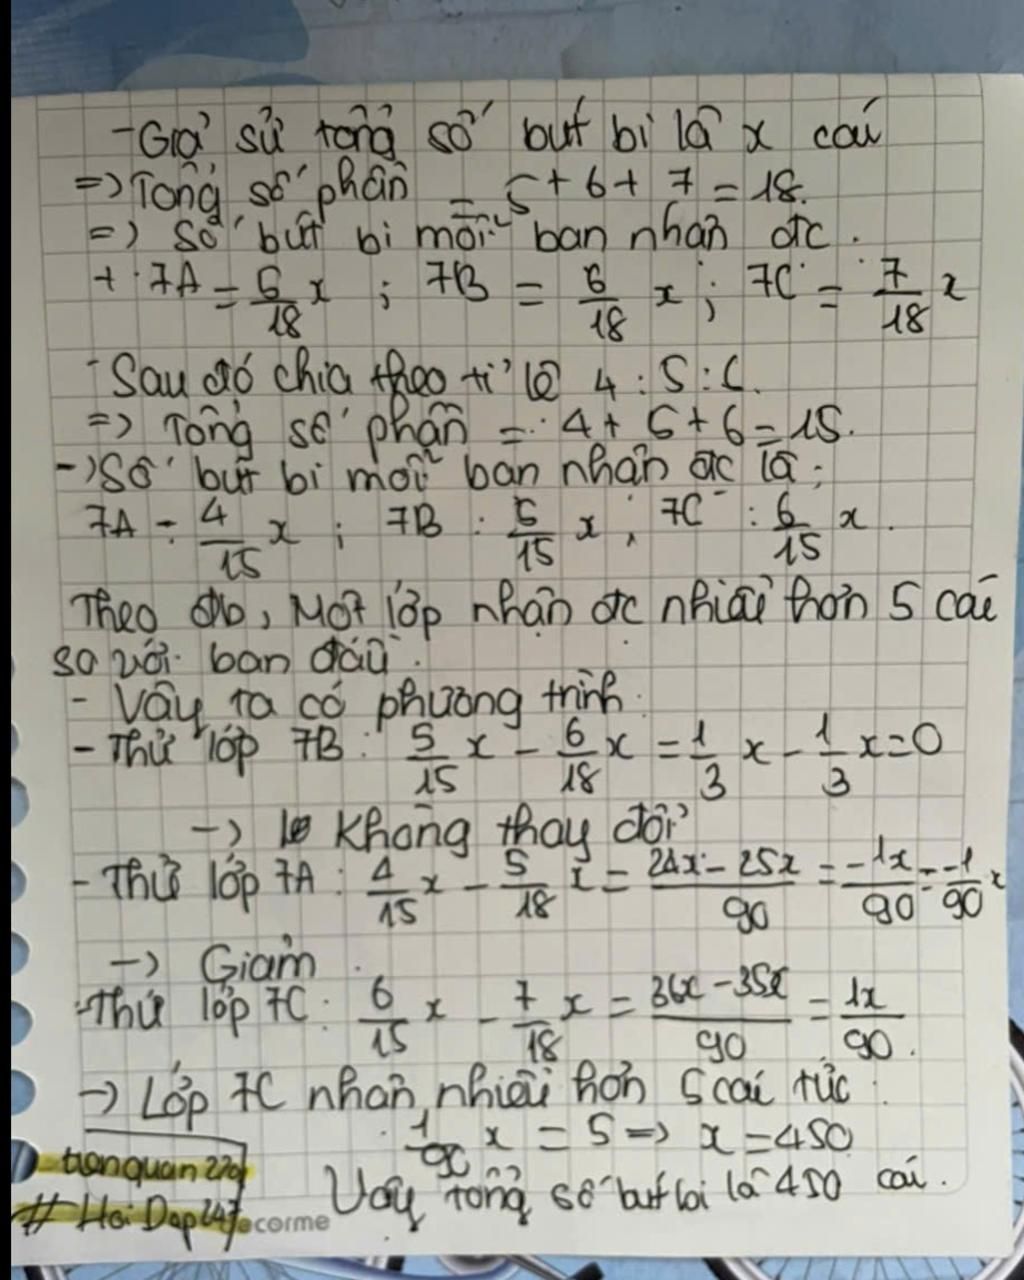 - Giả sử tổng số bút bi là x cái
=> Tổng số phần = 5 + 6 + 7 = 18.
=> Số bút bi mỗi ban nhận đc.
+ 7A = 5/18 x ; 7B = 6/18 x ; 7C = 7/18 x
- Sau đó chia theo tỉ lệ 4 : 5 : 6.
=> Tổng số phần = 4 + 5 + 6 = 15.
-> Số bút bi mỗi ban nhận đc là :
7A : 4/15 x ; 7B : 5/15 x ; 7C : 6/15 x.
Theo đb, Một lớp nhận đc nhiều hơn 5 cái
so với ban đầu.
- Vậy ta có phương trình.
- Thử lớp 7B : 5/15 x - 6/18 x = 1/3 x - 1/3 x = 0
-> Không thay đổi
- Thử lớp 7A : 4/15 x - 5/18 x = 24x - 25x/90 = -1x/90 = -1/90 x
-> Giảm
- Thử lớp 7C : 6/15 x - 7/18 x = 36x - 35x/90 = 1x/90.
-> Lớp 7C nhận nhiều hơn 5 cái tức :
1/90 x = 5 => x = 450
Vậy tổng số bút bi là 450 cái.
# Hoi Dap247
ecorme